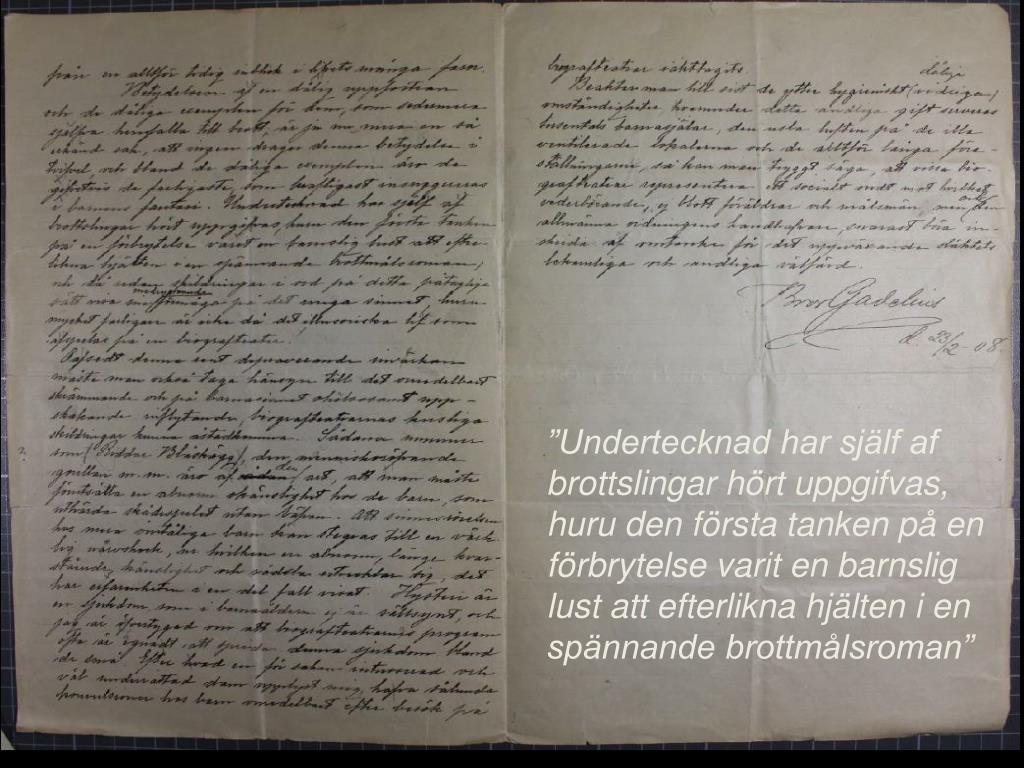 från en alltför tidig inblick i lifvets många faser.
Betydelsen af en dålig uppfostran
och de dåliga exemplen för dem, som sedermera
själfva hemfalla till brott, är ju nu mera en så
erkänd sak, att ingen drager denna betydelse i
tvifvel, och bland de dåliga exemplen äro de
de farligaste, som kraftigast insuggereras
i barnens fantasi. Undertecknad har själf af
brottslingar hört uppgifvas, huru den första tanken
på en förbrytelse varit en barnslig lust att efter-
likna hjälten i en spännande brottmålsroman,
och då redan skildringar i ord på detta påtagliga
sätt visa sin förmåga på det unga sinnet, huru
mycket farligare är icke då det illusoriska lif som
afspelas på en biografteater.
Afsedt denna rent depraverande inverkan
måste man också taga hänsyn till det omedelbart
skrämmande och på barnasinnet ohälsosamt upp-
skakande inflytande, biografteatrarnas kusliga
skildringar kunna åstadkomma. Sådana nummer
som (Riddar Blåskägg), den människoröfvande
gorillan m.m. äro af den art, att man måste
förutsätta en abnorm okänslighet hos de barn, som
uthärda skådespelet utan bäfvan. Att sinnesrörelsen
hos mera ömtåliga barn kan stegras till en verk-
lig nervchock, ur hvilken en abnorm, länge kvar-
stående känslighet och rädsla utvecklar sig, det
har erfarenheten i en del fall visat. Hysteri är
en sjukdom, som i barnaåldern ej är sällsynt, och
jag är öfvertygad om att biografteatrarnas program
ofta är egnadt att sprida denna sjukdom bland
de små. Efter hvad en för saken intresserad och
väl underrättad dam upplyst mig, hafva sålunda
konvulsioner hos barn omedelbart efter besök på
biografteater iakttagits.
Beaktar man till sist de yttre hygieniskt (vidriga)
dåliga
omständigheter hvarunder detta andliga gift serveras
tusentals barnasjälar, den usla luften på de illa
ventilerade lokalerna och de alltför långa före-
ställningarna, så kan man tryggt säga, att vissa bio-
grafteatrar representera ett socialt ondt mot hvilket
vederbörande, ej blott föräldrar och målsmän, men och den
allmänna ordningens handhafvare, snarast böra in-
skrida af omtanke för det uppväxande släktets
lekamliga och andliga välfärd.
Bror Gadelius
d. 23/2 - 08.
”Undertecknad har själf af
brottslingar hört uppgifvas,
huru den första tanken på en
förbrytelse varit en barnslig
lust att efterlikna hjälten i en
spännande brottmålsroman”